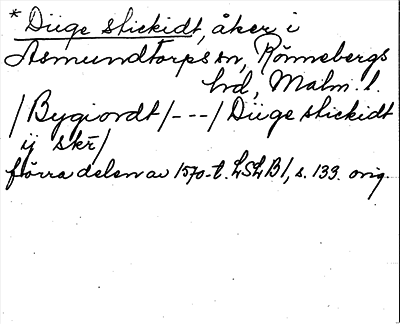 * Diige stickidt, åker i
Asmundtorps sn, Rönnebergs
hd, Malm. l.
/Bygiordt/---/Diige stickidt
ij skr/
förra delen av 1570-t. LSLB1, s. 139. orig.